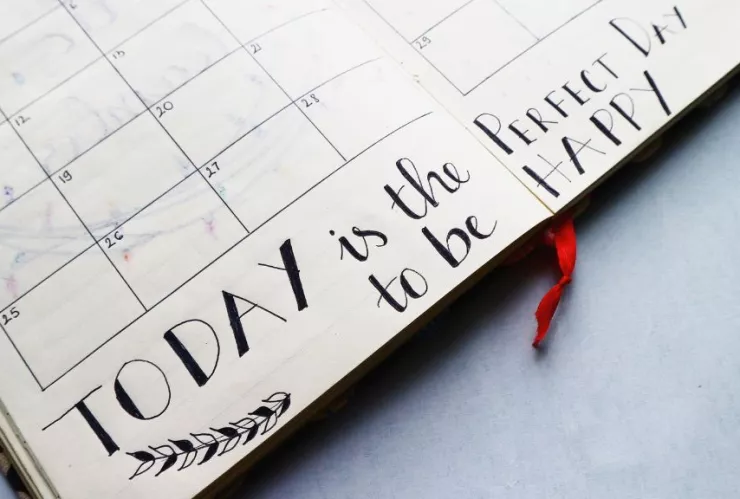 6
12 13 21
19 20 28
25 26 27
29
TODAY is the PERFECT DAY
to be HAPPY